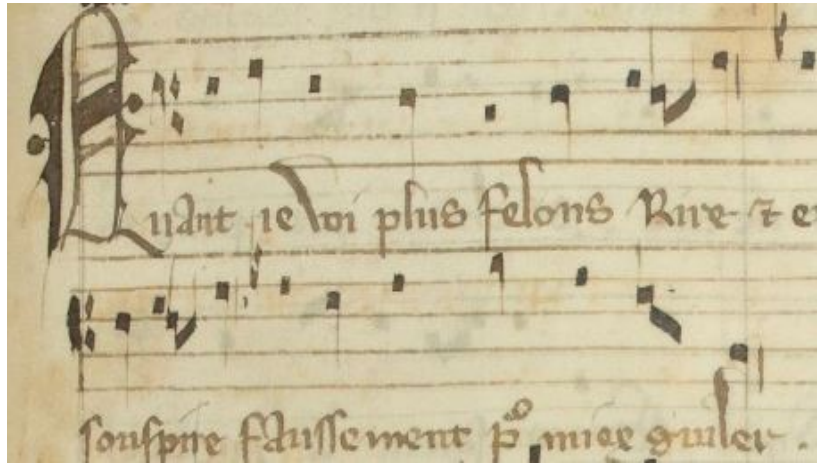 Quant ie voi plus felons Rire ⁊ e
souspire faussement po miex guiler .